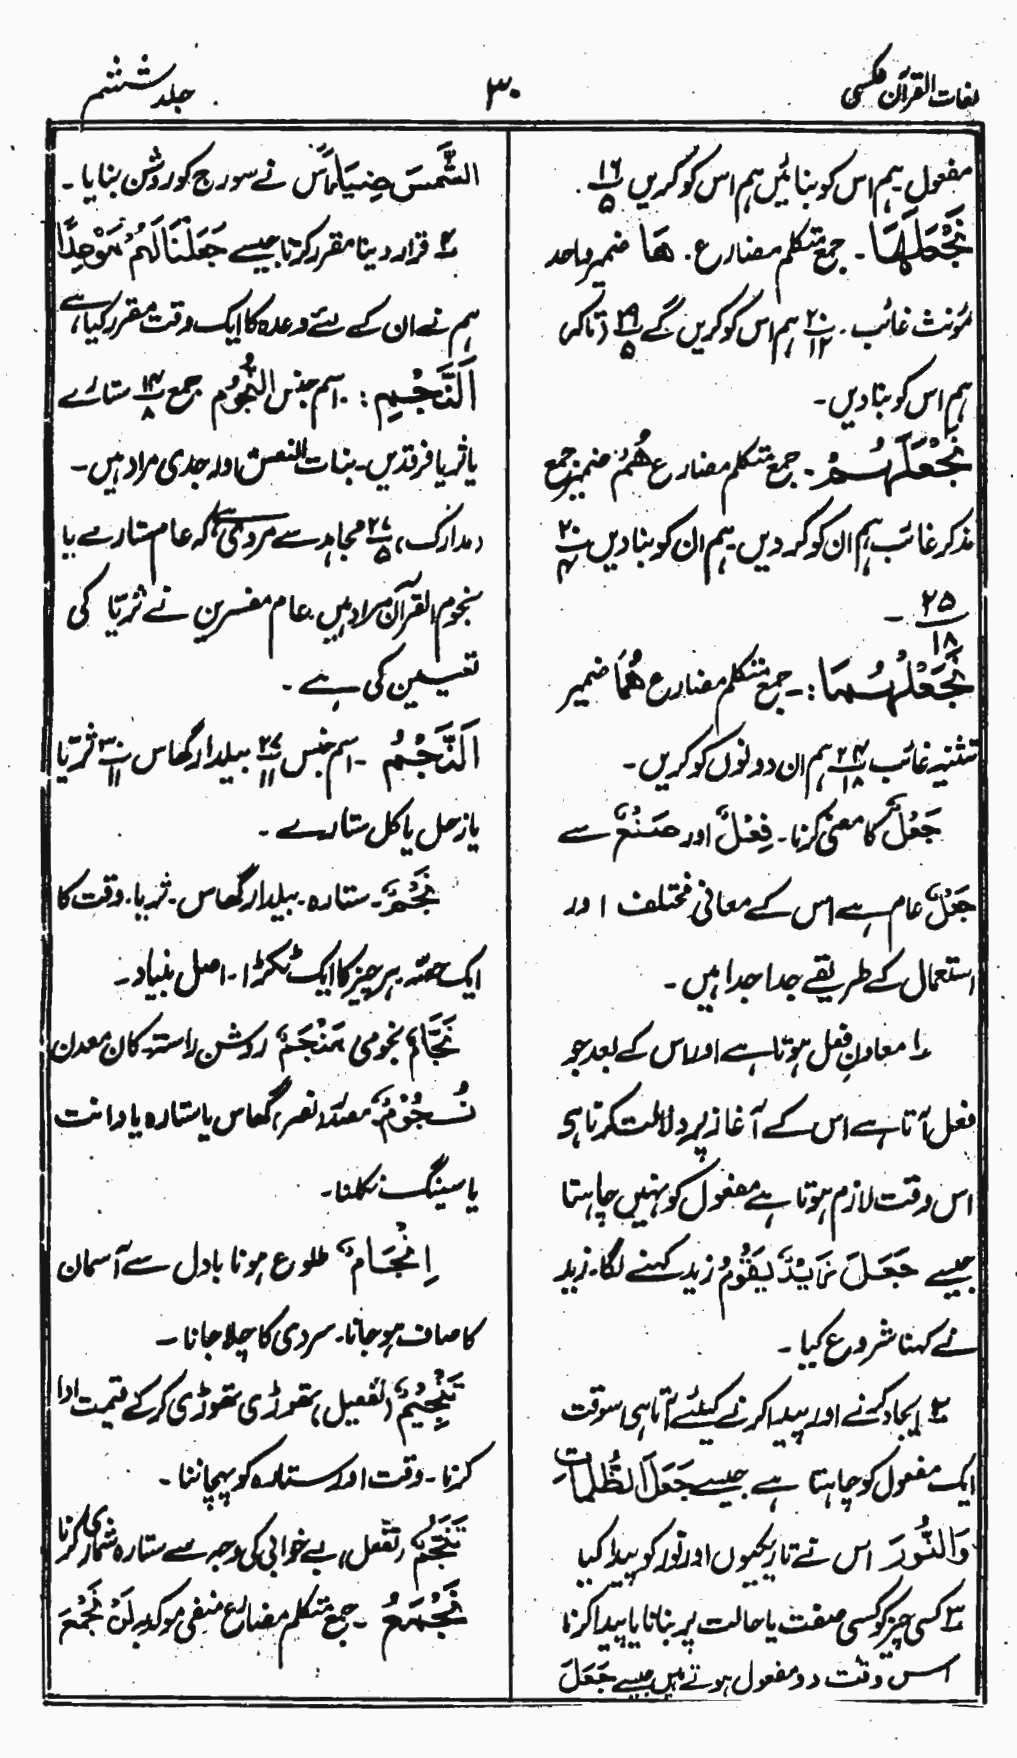 لغات القرآن عکسی
۳۰
جلد ششم
مفعول ہم اس کو بنائیں ہم اس کو کریں ۱۶/۵ ۔
نَجْعَلَهَا ۔ جمع متکلم مضارع ۔ ھَا ضمیر واحد
مؤنث غائب ۔ ۲۰/۱۲ ہم اس کو کریں گے ۲۹/۵ (تاکہ)
ہم اس کو بنادیں ۔
نَجْعَلَهُمْ ۔ جمع متکلم مضارع ھُمْ ضمیر جمع
مذکر غائب ہم ان کو کر دیں ہم ان کو بنادیں ۲۰/۴
۲۵/۱۸ ۔
نَجْعَلْهُمَا :۔ جمع متکلم مضارع ھُمَا ضمیر
تثنیہ غائب ۲۴/۱۸ ہم ان دونوں کو کریں ۔
جَعْلٌ کا معنی کرنا ۔ فِعْلٌ اور صَنْعٌ سے
جَعْلٌ عام ہے اس کے معانی مختلف اور
استعمال کے طریقے جدا جدا ہیں ۔
۱ معاون فعل ہوتا ہے اور اس کے بعد جو
فعل آتا ہے اس کے آغاز پر دلالت کرتا ہے
اس وقت لازم ہوتا ہے مفعول کو نہیں چاہتا
جیسے جَعَلَ زَیْدٌ یَقُوْمُ زید کہنے لگا ۔ زید
نے کہنا شروع کیا ۔
۲ ایجاد کرنے اور پیدا کرنے کیلئے آتا ہی اسوقت
ایک مفعول کو چاہتا ہے جیسے جَعَلَ الظُّلُمَاتِ
وَالنُّوْرَ اس نے تاریکیوں اور نور کو پیدا کیا
۳ کسی چیز کو کسی صفت یا حالت پر بنانا یا پیدا کرنا
اس وقت دو مفعول ہوتے ہیں جیسے جَعَلَ
الشَّمْسَ ضِیَاءً اس نے سورج کو روشن بنایا ۔
۴ قرار دینا مقرر کرنا جیسے جَعَلْنَا لَهُمْ مَوْعِدًا
ہم نے ان کے لئے وعدہ کا ایک وقت مقرر کیا ہے
اَلنَّجْمِ :۔ اسم جنس النُّجُوْمُ جمع ۱۴/۸ ستارے
یا ثریا فرقدین ۔ بنات النعش اور جدی مراد ہیں ۔
(مدارک) ۲۷/۵ مجاہد سے مروی ہے کہ عام ستارے یا
نجوم القرآن مراد ہیں عام مفسرین نے ثریّا کی
تعیین کی ہے ۔
اَلنَّجْمُ ۔ اسم جنس ۲۷/۱۱ بیلدار گھاس ۳۰/۱۱ ثریّا
یا زحل یا کل ستارے ۔
نَجْمٌ ۔ ستارہ ۔ بیلدار گھاس ۔ ثریا ۔ وقت کا
ایک حصّہ ہر چیز کا ایک ٹکڑا ۔ اصل بنیاد ۔
نَجَّامٌ نجومی مَنْجَمٌ روشن راستہ کان معدن
نُجُوْمٌ مصدر (نصر) گھاس یا ستارہ یا دانت
یا سینگ نکلنا ۔
اِنْجَامٌ طلوع ہونا بادل سے آسمان
کا صاف ہو جانا ۔ سردی کا چلا جانا ۔
تَنْجِیْمٌ (تفعیل) تھوڑی تھوڑی کر کے قیمت ادا
کرنا ۔ وقت اور ستارہ کو پہچاننا ۔
تَنَجُّمٌ (تفعل) بے خوابی کی وجہ سے ستارہ شماری کرنا
نَجْمَعُ ۔ جمع متکلم مضارع منفی موکد بہ لَنْ نَجْمَعَ